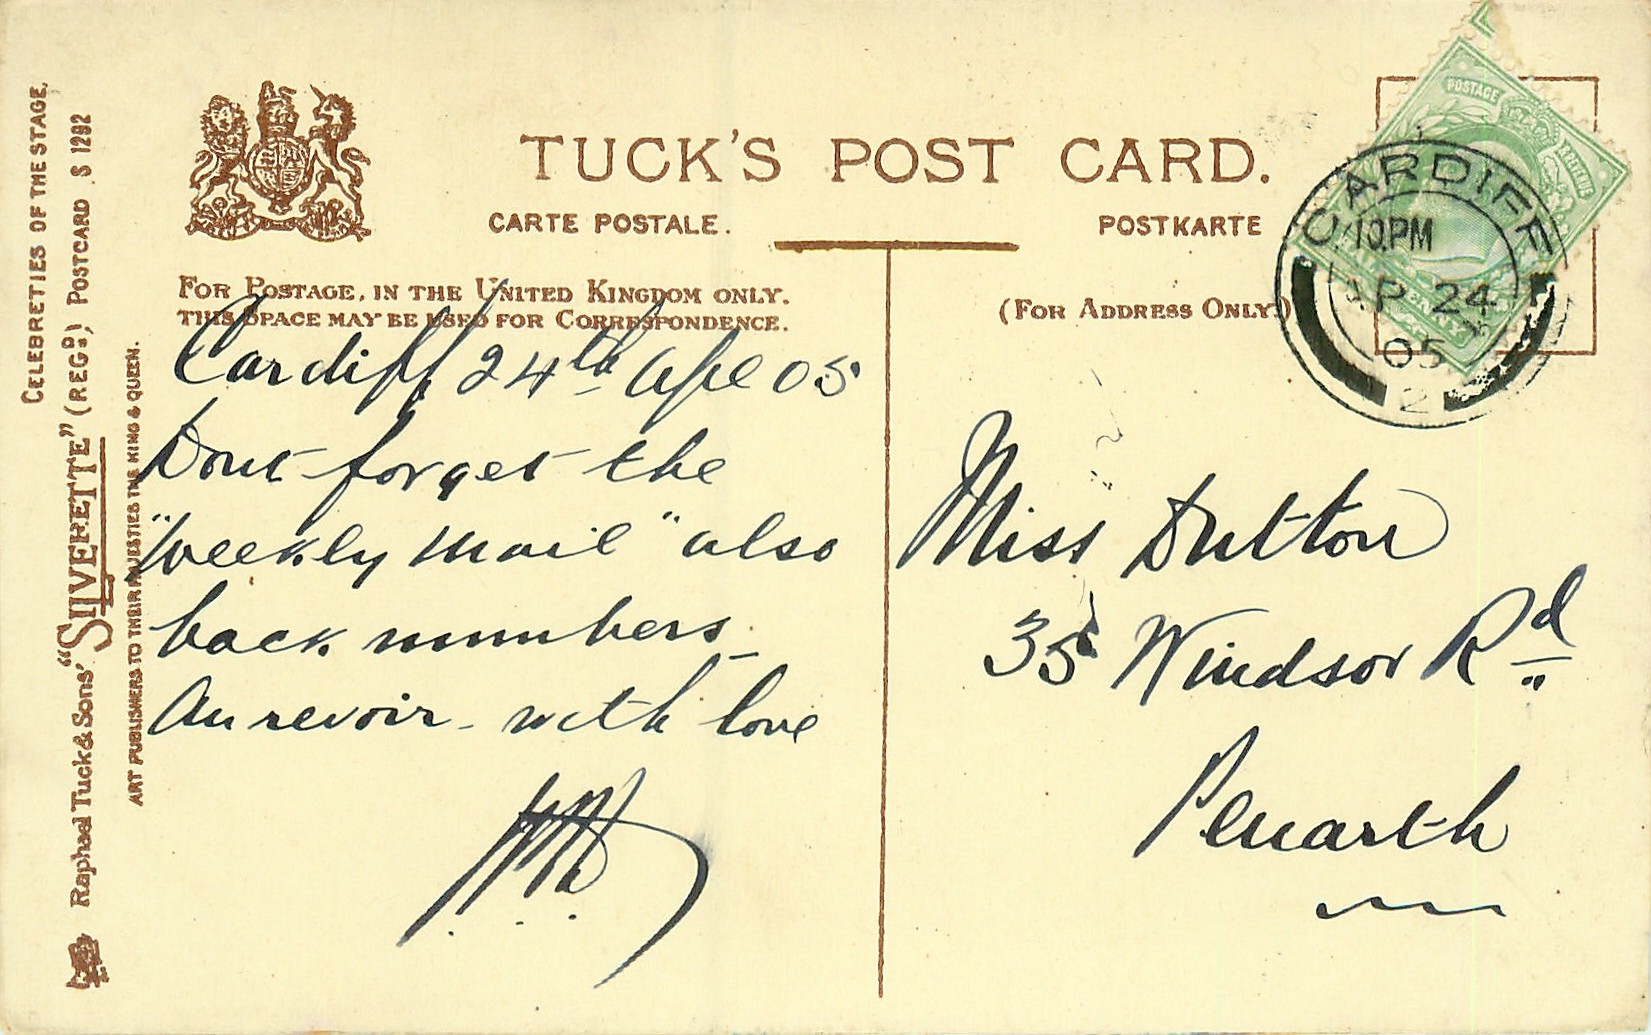 CELEBRETIES OF THE STAGE.
Raphael Tuck & Sons' "SILVERETTE" (REGD) POSTCARD S 1292
ART PUBLISHERS TO THEIR MAJESTIES THE KING & QUEEN.
TUCK'S POST CARD.
CARTE POSTALE.
POSTKARTE
FOR POSTAGE, IN THE UNITED KINGDOM ONLY.
THIS SPACE MAY BE USED FOR CORRESPONDENCE.
(FOR ADDRESS ONLY)
POSTAGE
REVENUE
CARDIFF
10.PM
AP 24
05
2
Cardiff 24th Apl 05
Dont forget the
"Weekly Mail" also
back numbers.
Au revoir - with love
Miss Dutton
35 Windsor Rd
Penarth